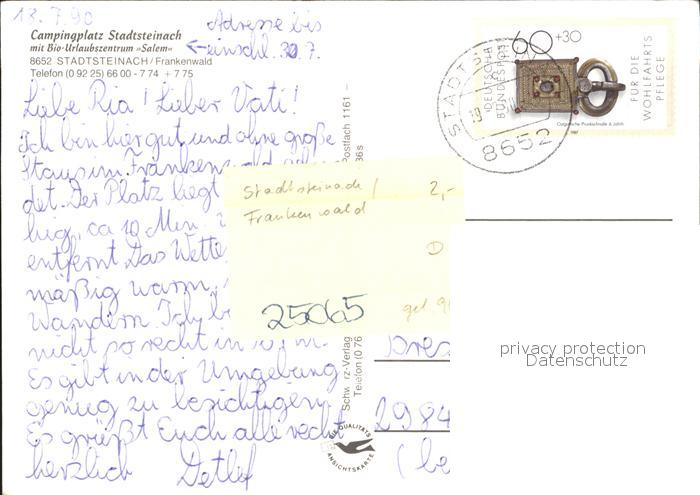 18.7.90
Adresse bis
einschl. 30.7.
Campingplatz Stadtsteinach
mit Bio-Urlaubszentrum »Salem«
8652 STADTSTEINACH/Frankenwald
Telefon (0 92 25) 66 00 - 7 74 + 7 75
Liebe Ria! Lieber Vati!
Ich bin hier gut und ohne große
Staus im Frankenwald
det. Der Platz liegt
hig, ca 10 Min.
entfernt. Das Wette
mäßig warm,
Wandern. Ich
nicht so recht in
Es gibt in der Umgebung
genug zu besichtigen.
Es grüßt Euch alle recht
herzlich Detlef
Stadtsteinach / 2,-
Frankenwald
D
25065
gel. 9
Postfach 1161 -
Schw rz-Verlag
Telefon (0 76
DIE QUALITÄTS
ANSICHTSKARTE
60+30
DEUTSCHE
BUNDESPOST
FÜR DIE
WOHLFAHRTS
PFLEGE
Ostgotische Prunkschnalle 6. Jahrh.
1987
8652
2984
(be
privacy protection
Datenschutz